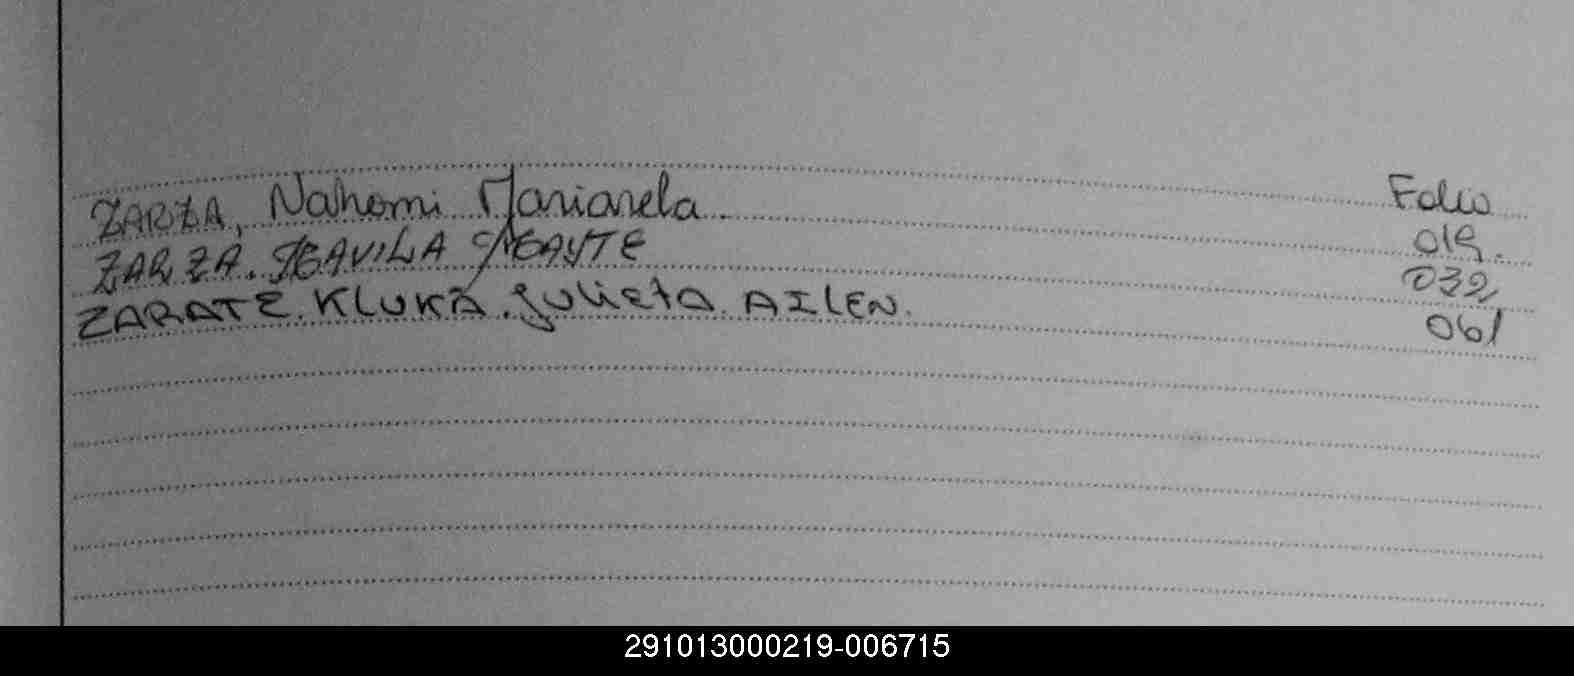 Folio
ZARZA, Nahomi Marianela. 019.
ZARZA. 032
ZARATE. KLUKA. Julieta. AILEN. 061
291013000219-006715